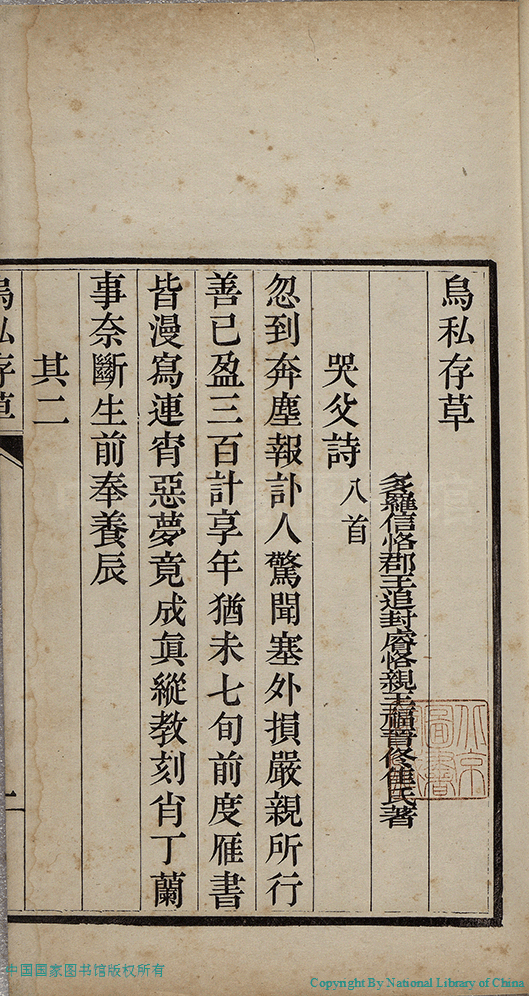 烏私存草
多羅信恪郡王追封睿恪親王福晉佟佳氏著
哭父詩八首
忽到奔塵報訃人驚聞塞外損嚴親所行
善已盈三百計享年猶未七旬前度雁書
皆漫寫連宵惡夢竟成眞縱教刻肖丁蘭
事奈斷生前奉養辰
其二
烏私存草
一
北京圖書
中国国家图书馆版权所有
Copyright By National Library of China